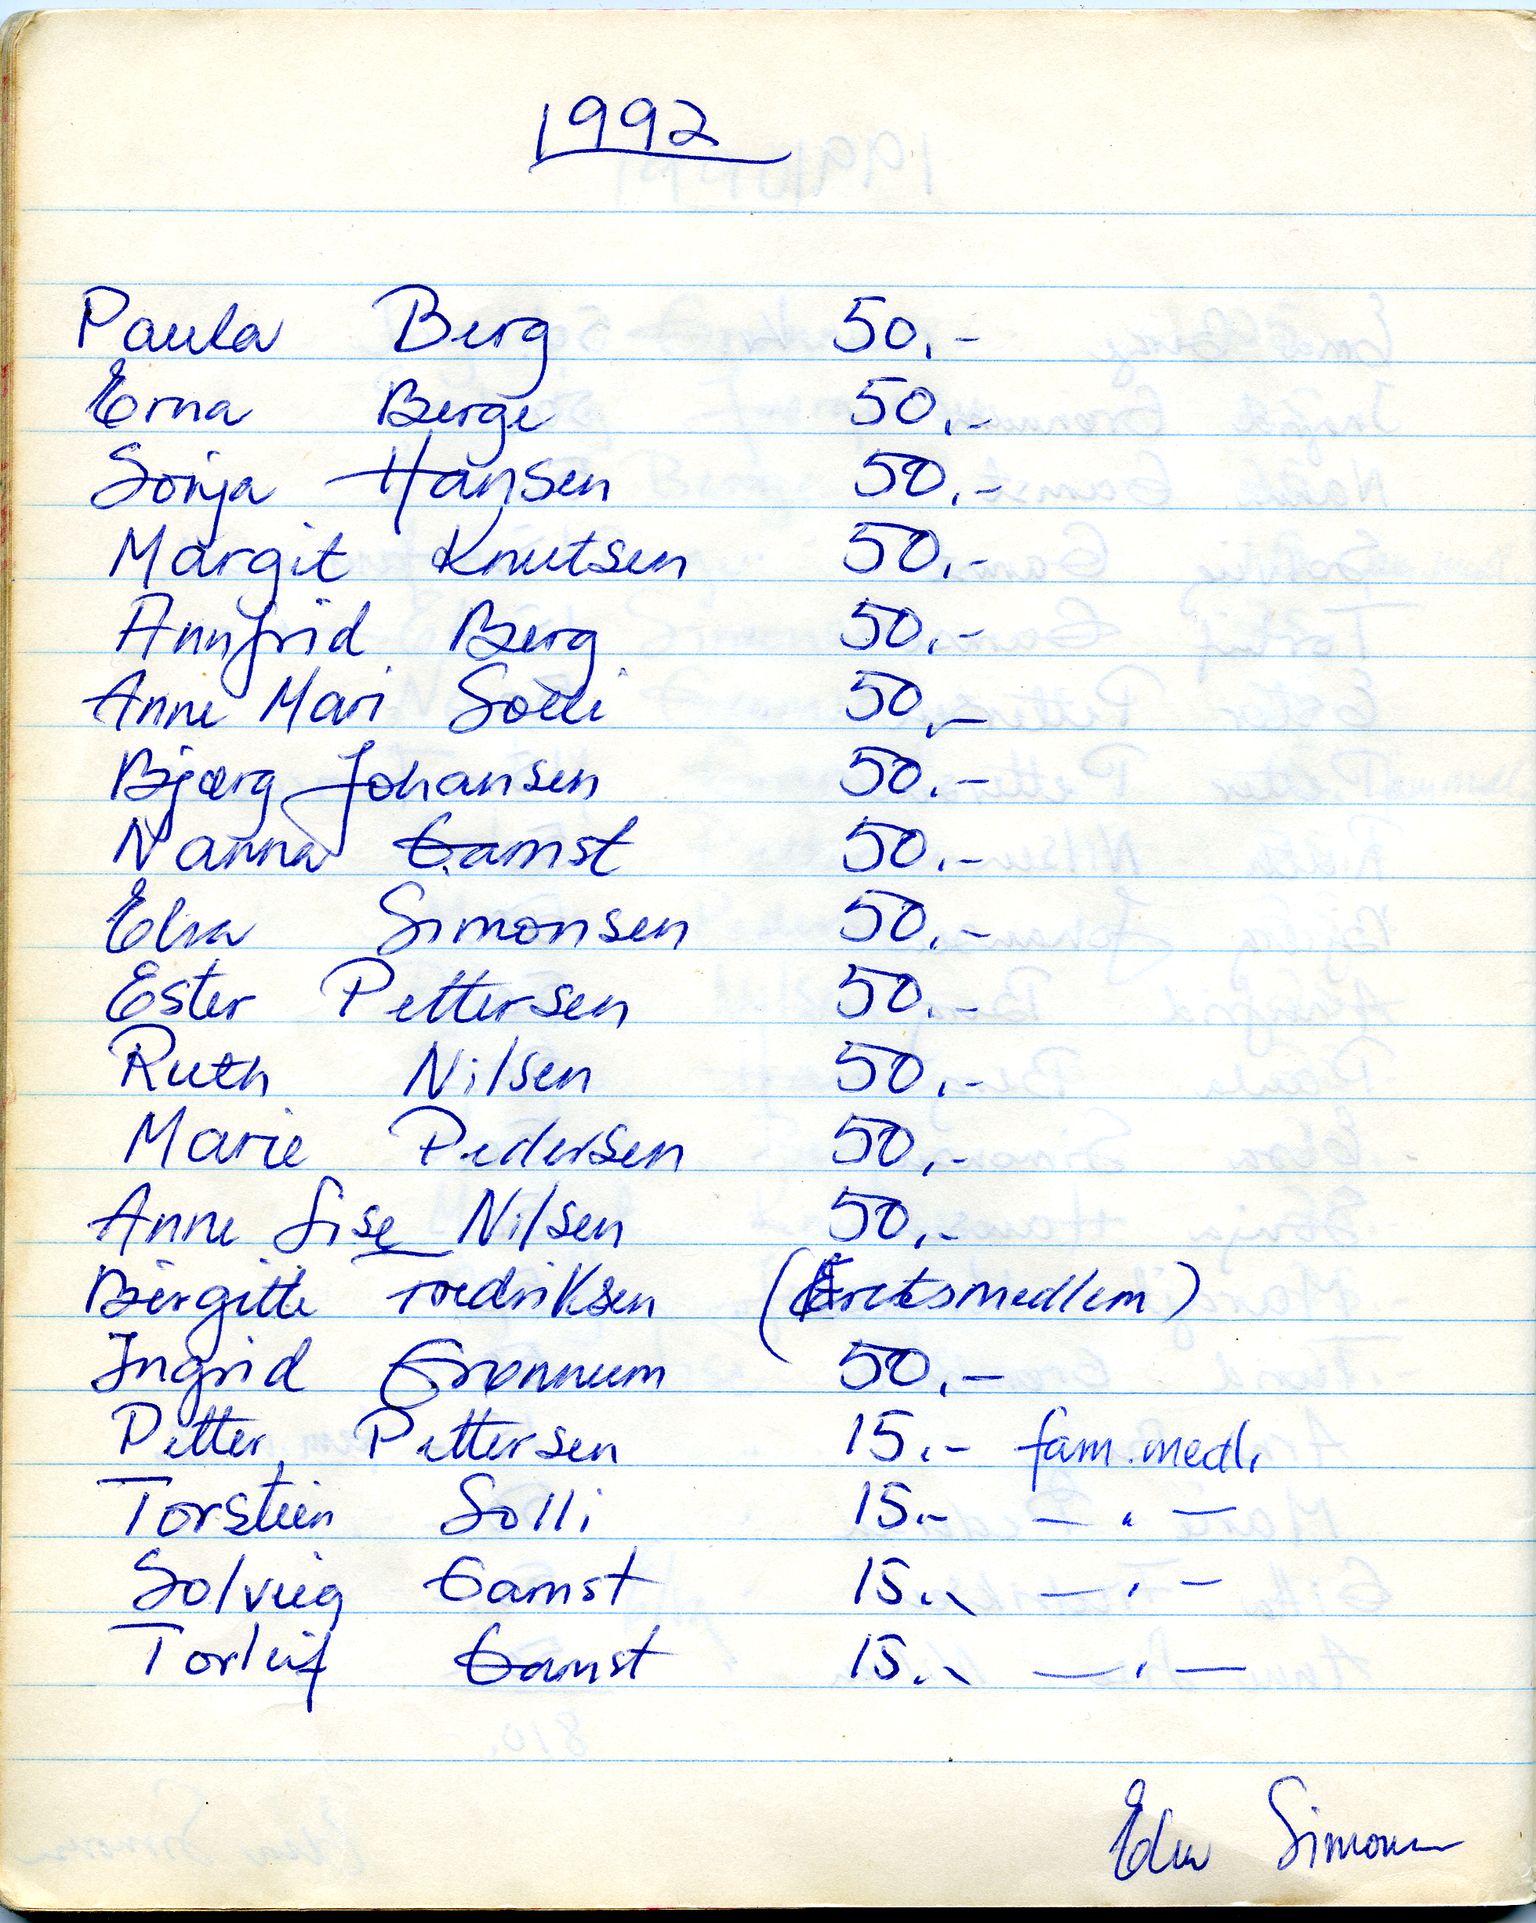 1992
Paula Berg 50.-
Erna Berge 50.-
Sonja Hansen 50.-
Margit Knutsen 50.-
Annfrid Berg 50.-
Anne Mari Solli 50.-
Bjørg Johansen 50.-
Nanna Gamst 50.-
Elva Simonsen 50.-
Ester Pettersen 50.-
Ruth Nilsen 50.-
Marie Pedersen 50.-
Anne Lise Nilsen 50.-
Birgitte Fredriksen (Kretsmedlem)
Ingrid Grønnum 50.-
Petter Pettersen 15.- fam.medl.
Torstein Solli 15.- — " —
Solveig Gamst 15.- — " —
Torleif Gamst 15.- — " —
Elva Simonsen